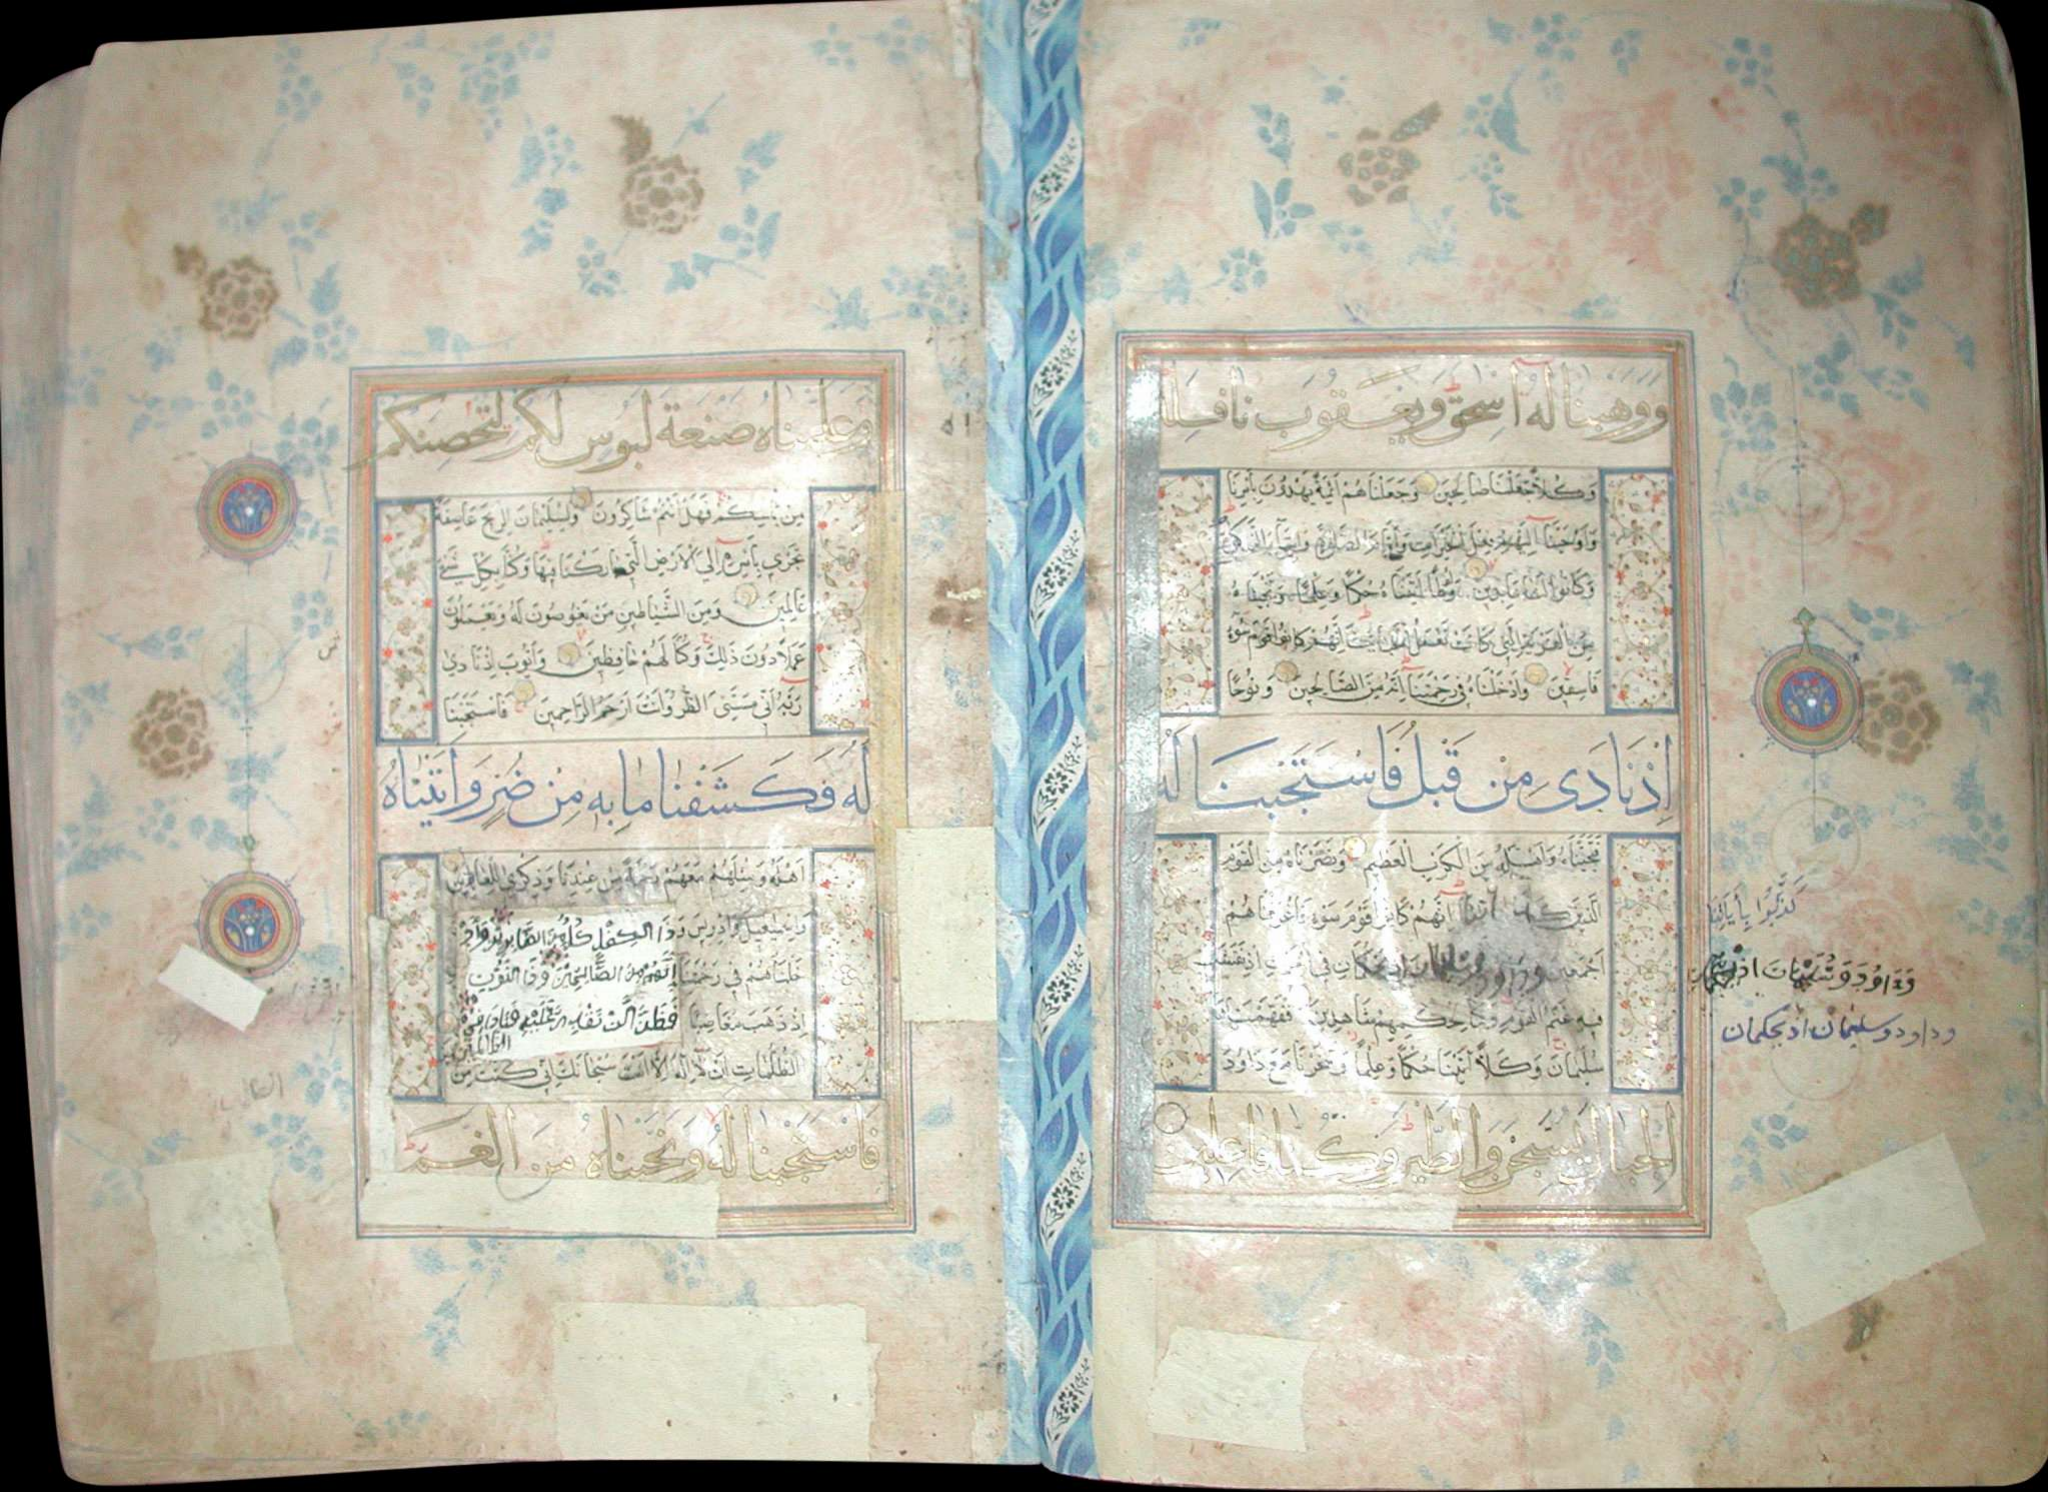 ووهبنا له اسحق ويعقوب نافلة
وَكُلًّا جَعَلْنَا صَالِحِينَ وَجَعَلْنَاهُمْ أَئِمَّةً يَهْدُونَ بِأَمْرِنَا
وَاَوْحَيْنَا اِلَيْهِمْ فِعْلَ الْخَيْرَاتِ وَاِقَامَ الصَّلٰوةِ وَاِيتَآءَ الزَّكٰوةِ
وَكَانُوا لَنَا عَابِدِينَ وَلُوطًا اٰتَيْنَاهُ حُكْمًا وَعِلْمًا وَنَجَّيْنَاهُ
مِنَ الْقَرْيَةِ الَّتِي كَانَتْ تَعْمَلُ الْخَبَآئِثَ اِنَّهُمْ كَانُوا قَوْمَ سَوْءٍ
فَاسِقِينَ وَاَدْخَلْنَاهُ فِي رَحْمَتِنَا اِنَّهُ مِنَ الصَّالِحِينَ وَنُوحًا
اِذْ نَادَى مِنْ قَبْلُ فَاسْتَجَبْنَا لَهُ
فَنَجَّيْنَاهُ وَاَهْلَهُ مِنَ الْكَرْبِ الْعَظِيمِ وَنَصَرْنَاهُ مِنَ الْقَوْمِ
الَّذِينَ اِنَّهُمْ كَانُوا قَوْمَ سَوْءٍ فَاَغْرَقْنَاهُمْ
اَجْمَعِينَ وداود وسليمان اذ يحكمان فِي الْحَرْثِ اِذْ نَفَشَتْ
فِيهِ غَنَمُ الْقَوْمِ وَكُنَّا لِحُكْمِهِمْ شَاهِدِينَ فَفَهَّمْنَاهَا
سُلَيْمَانَ وَكُلًّا اٰتَيْنَا حُكْمًا وَعِلْمًا وَسَخَّرْنَا مَعَ دَاوُدَ
الجبال يسبحن والطير وكنا فاعلين
كَذَّبُوا بِأَيَاتِنَا
وَدَاوُدَ وَسُلَيْمَانَ اذ يحكمان
وداود وسليمان اذ يحكمان
وعلمناه صنعة لبوس لكم لتحصنكم
مِنْ بَاْسِكُمْ فَهَلْ اَنْتُمْ شَاكِرُونَ وَلِسُلَيْمَانَ الرِّيحَ عَاصِفَةً
تَجْرِي بِاَمْرِهِ اِلَى الْاَرْضِ الَّتِي بَارَكْنَا فِيهَا وَكُنَّا بِكُلِّ شَيْءٍ
عَالِمِينَ وَمِنَ الشَّيَاطِينِ مَنْ يَغُوصُونَ لَهُ وَيَعْمَلُونَ
عَمَلًا دُونَ ذٰلِكَ وَكُنَّا لَهُمْ حَافِظِينَ وَاَيُّوبَ اِذْ نَادَى
رَبَّهُ اَنِّي مَسَّنِيَ الضُّرُّ وَاَنْتَ اَرْحَمُ الرَّاحِمِينَ فَاسْتَجَبْنَا
لَهُ فَكَشَفْنَا مَا بِهِ مِنْ ضُرٍّ وَاٰتَيْنَاهُ
اَهْلَهُ وَمِثْلَهُمْ مَعَهُمْ رَحْمَةً مِنْ عِنْدِنَا وَذِكْرَى لِلْعَابِدِينَ
وَاِسْمٰعِيلَ وَاِدْرِيسَ وَذَا الْكِفْلِ كُلٌّ مِنَ الصَّابِرِينَ وَاَدْ
خَلْنَاهُمْ فِي رَحْمَتِنَا اِنَّهُمْ مِنَ الصَّالِحِينَ وَذَا النُّونِ
اِذْ ذَهَبَ مُغَاضِبًا فَظَنَّ اَلَّنْ نَقْدِرَ عَلَيْهِ فَنَادَى فِي
الظُّلُمَاتِ اَنْ لَا اِلٰهَ اِلَّا اَنْتَ سُبْحَانَكَ اِنِّي كُنْتُ مِنَ
الظالمين
فَاسْتَجَبْنَا لَهُ وَنَجَّيْنَاهُ مِنَ الْغَمِّ